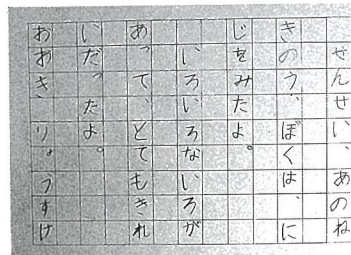 せんせい、あのね
きのう、ぼくは、に
じをみたよ。
いろいろないろが
あって、とてもきれ
いだったよ。
おおき りょうすけ